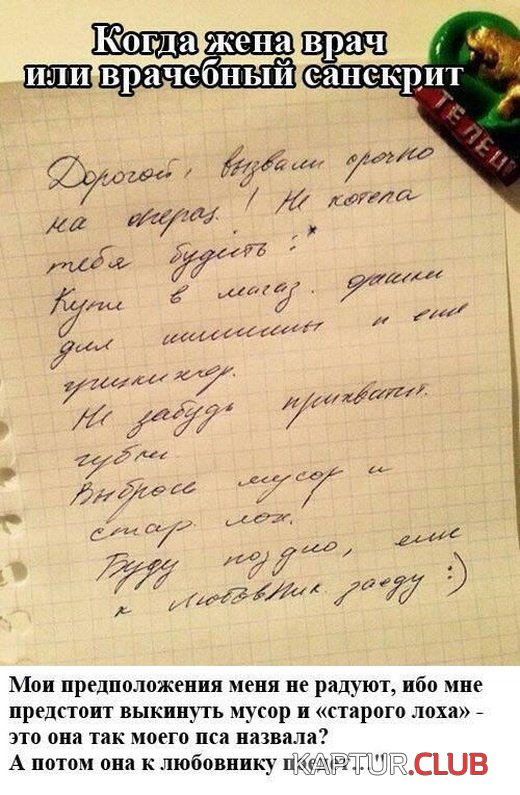 Когда жена врач
или врачебный санскрит
ТЕЛЕЦ
Дорогой, вызвали срочно
на операц! Не хотела
тебя будить :*
Купи в магаз.
для и еще
Не забудь прихватит.
губки
Выброси мусор и
стар. лох!
Буду поздно, еще
к любовник заеду :)
Мои предположения меня не радуют, ибо мне
предстоит выкинуть мусор и «старого лоха» -
это она так моего пса назвала?
А потом она к любовнику
KAPTUR.CLUB